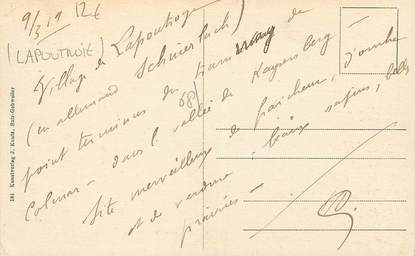 9/3 19 12€
(LAPOUTROIE)
Village de Lapoutroye
(en allemand Schnierlach)
point terminus du tramway de
Colmar - dans la vallée de Kaysersberg
(68)
Site merveilleux de fraîcheur, d'ombre
et de verdure; beaux sapins, belles
prairies -
184 Kunstverlag J. Kuntz, Sulz-Gebweiler